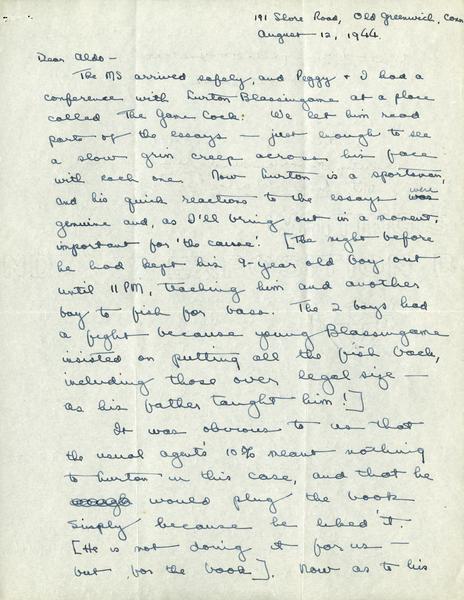 191 Shore Road, Old Greenwich, Conn
August 12, 1944.
Dear Aldo -
The MS arrived safely, and Peggy + I had a
conference with Lurton Blassingame at a place
called The Game Cock. We let him read
parts of the essays - just enough to see
a slow grin creep across his face
with each one. Now Lurton is a sportsman,
and his quick reactions to the essays were
genuine and, as I'll bring out in a moment,
important for 'the cause'. [The night before
he had kept his 9-year old boy out
until 11 PM, teaching him and another
boy to fish for bass. The 2 boys had
a fight because young Blassingame
insisted on putting all the fish back,
including those over legal size -
as his father taught him!]
It was obvious to us that
the usual agent's 10% meant nothing
to Lurton in this case, and that he
would plug the book
simply because he liked it.
[He is not doing it for us -
but for the book]. Now as to his